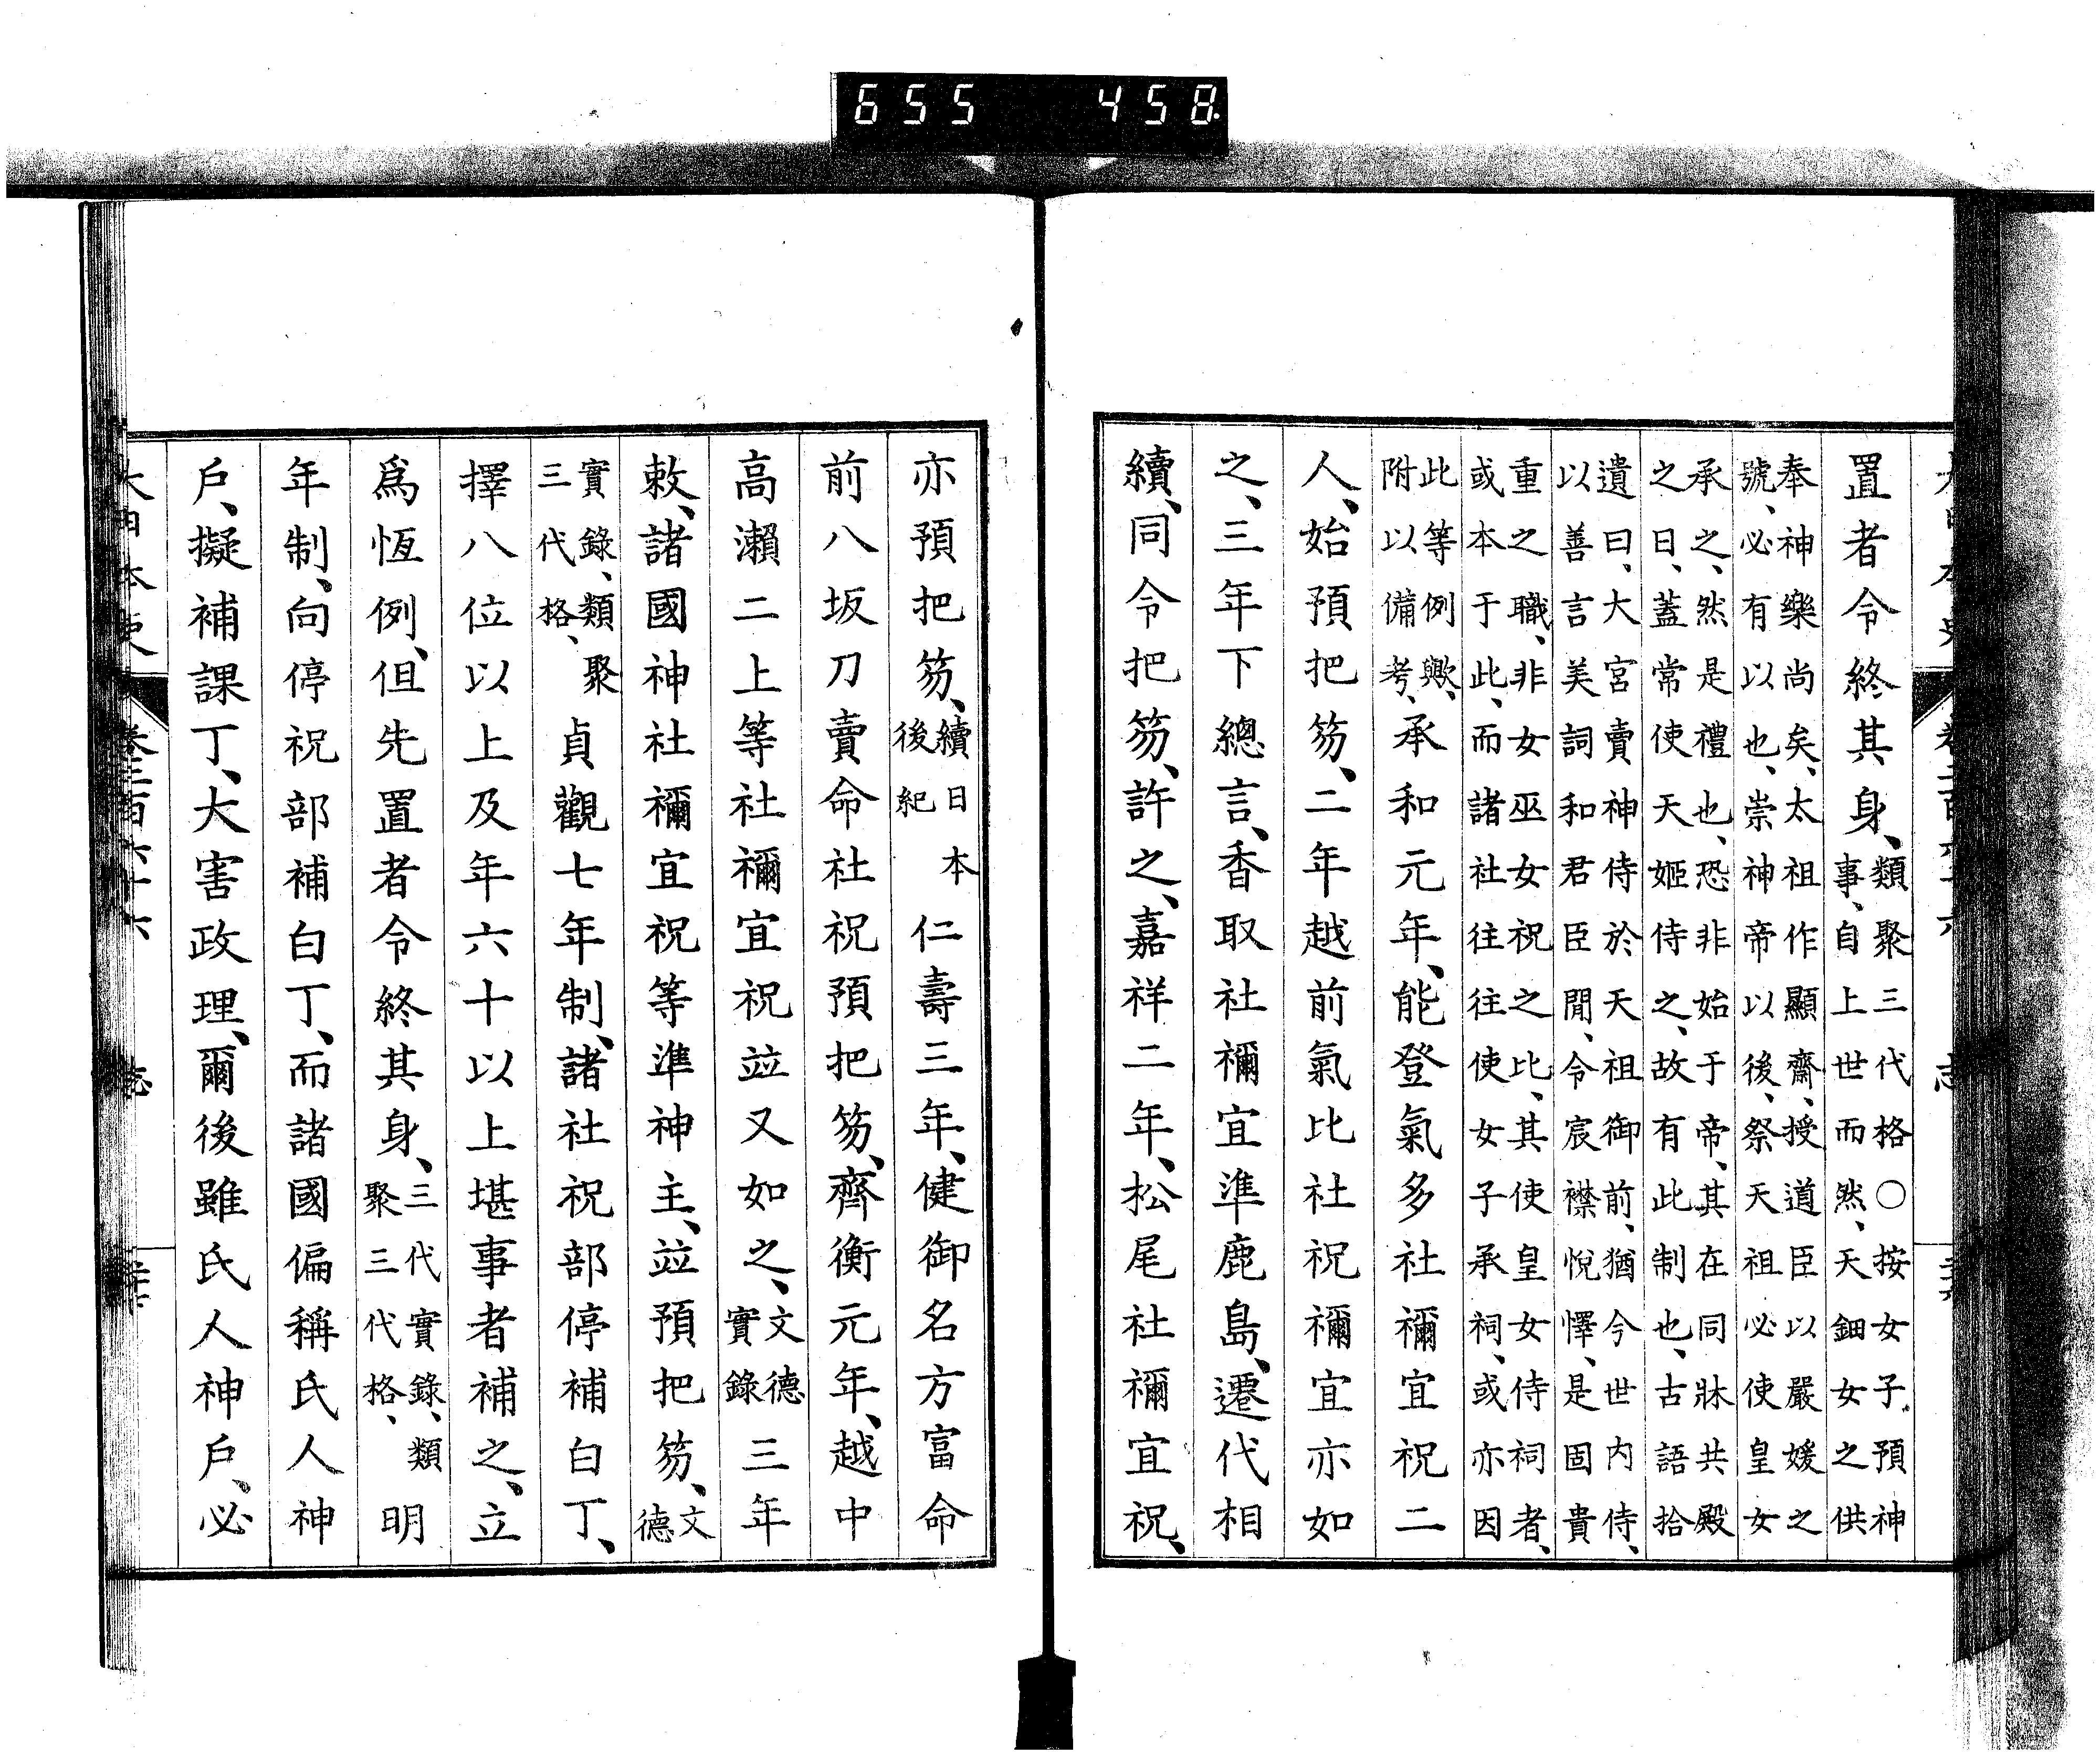 置者令終其身、類聚三代格○按女子預神
事、自上世而然、天鈿女之供
奉神樂尚矣、太祖作顯齋、授道臣以嚴媛之
號、必有以也、崇神帝以後、祭天祖必使皇女
承之、然是禮也、恐非始于帝、其在同牀共殿
之日、蓋常使天姬侍之、故有此制也、古語拾
遺曰、大宮賣神侍於天祖御前、猶今世内侍、
以善言美詞和君臣間、令宸襟悅懌、是固貴
重之職、非女巫女祝之比、其使皇女侍祠者、
或本于此、而諸社往往使女子承祠、或亦因
此等例歟、
附以備考、承和元年、能登氣多社禰宜祝二
人、始預把笏、二年越前氣比社祝禰宜亦如
之、三年下總言、香取社禰宜準鹿島、遷代相
續、同令把笏、許之、嘉祥二年、松尾社禰宜祝、
亦預把笏、續日本
後紀仁壽三年、健御名方富命
前八坂刀賣命社祝預把笏、齊衡元年、越中
高瀨二上等社禰宜祝竝又如之、文德
實錄三年
敕、諸國神社禰宜祝等準神主、竝預把笏、文
德
實錄、類聚
三代格、貞觀七年制、諸社祝部停補白丁、
擇八位以上及年六十以上堪事者補之、立
爲恆例、但先置者令終其身、三代實錄、類
聚三代格、明
年制、向停祝部補白丁、而諸國偏稱氏人神
戶、擬補課丁、大害政理、爾後雖氏人神戶、必
大日本史
卷二百六十六
志
655 458